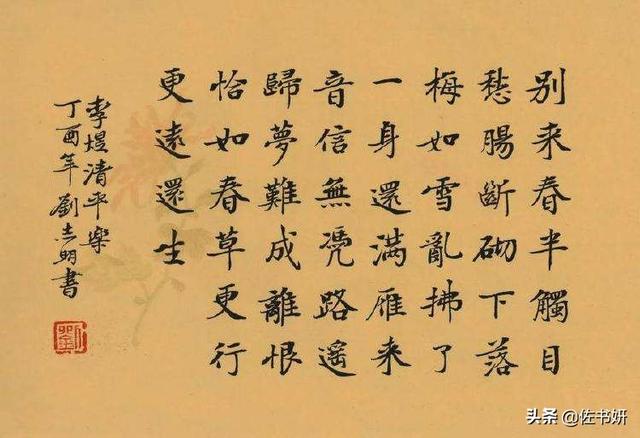 别来春半觸目
愁腸斷砌下落
梅如雪亂拂了
一身還滿雁来
音信無凴路遥
歸夢難成離恨
恰如春草更行
更遠還生
李煜清平樂
丁酉年劉志明書
头条 @佐书妍